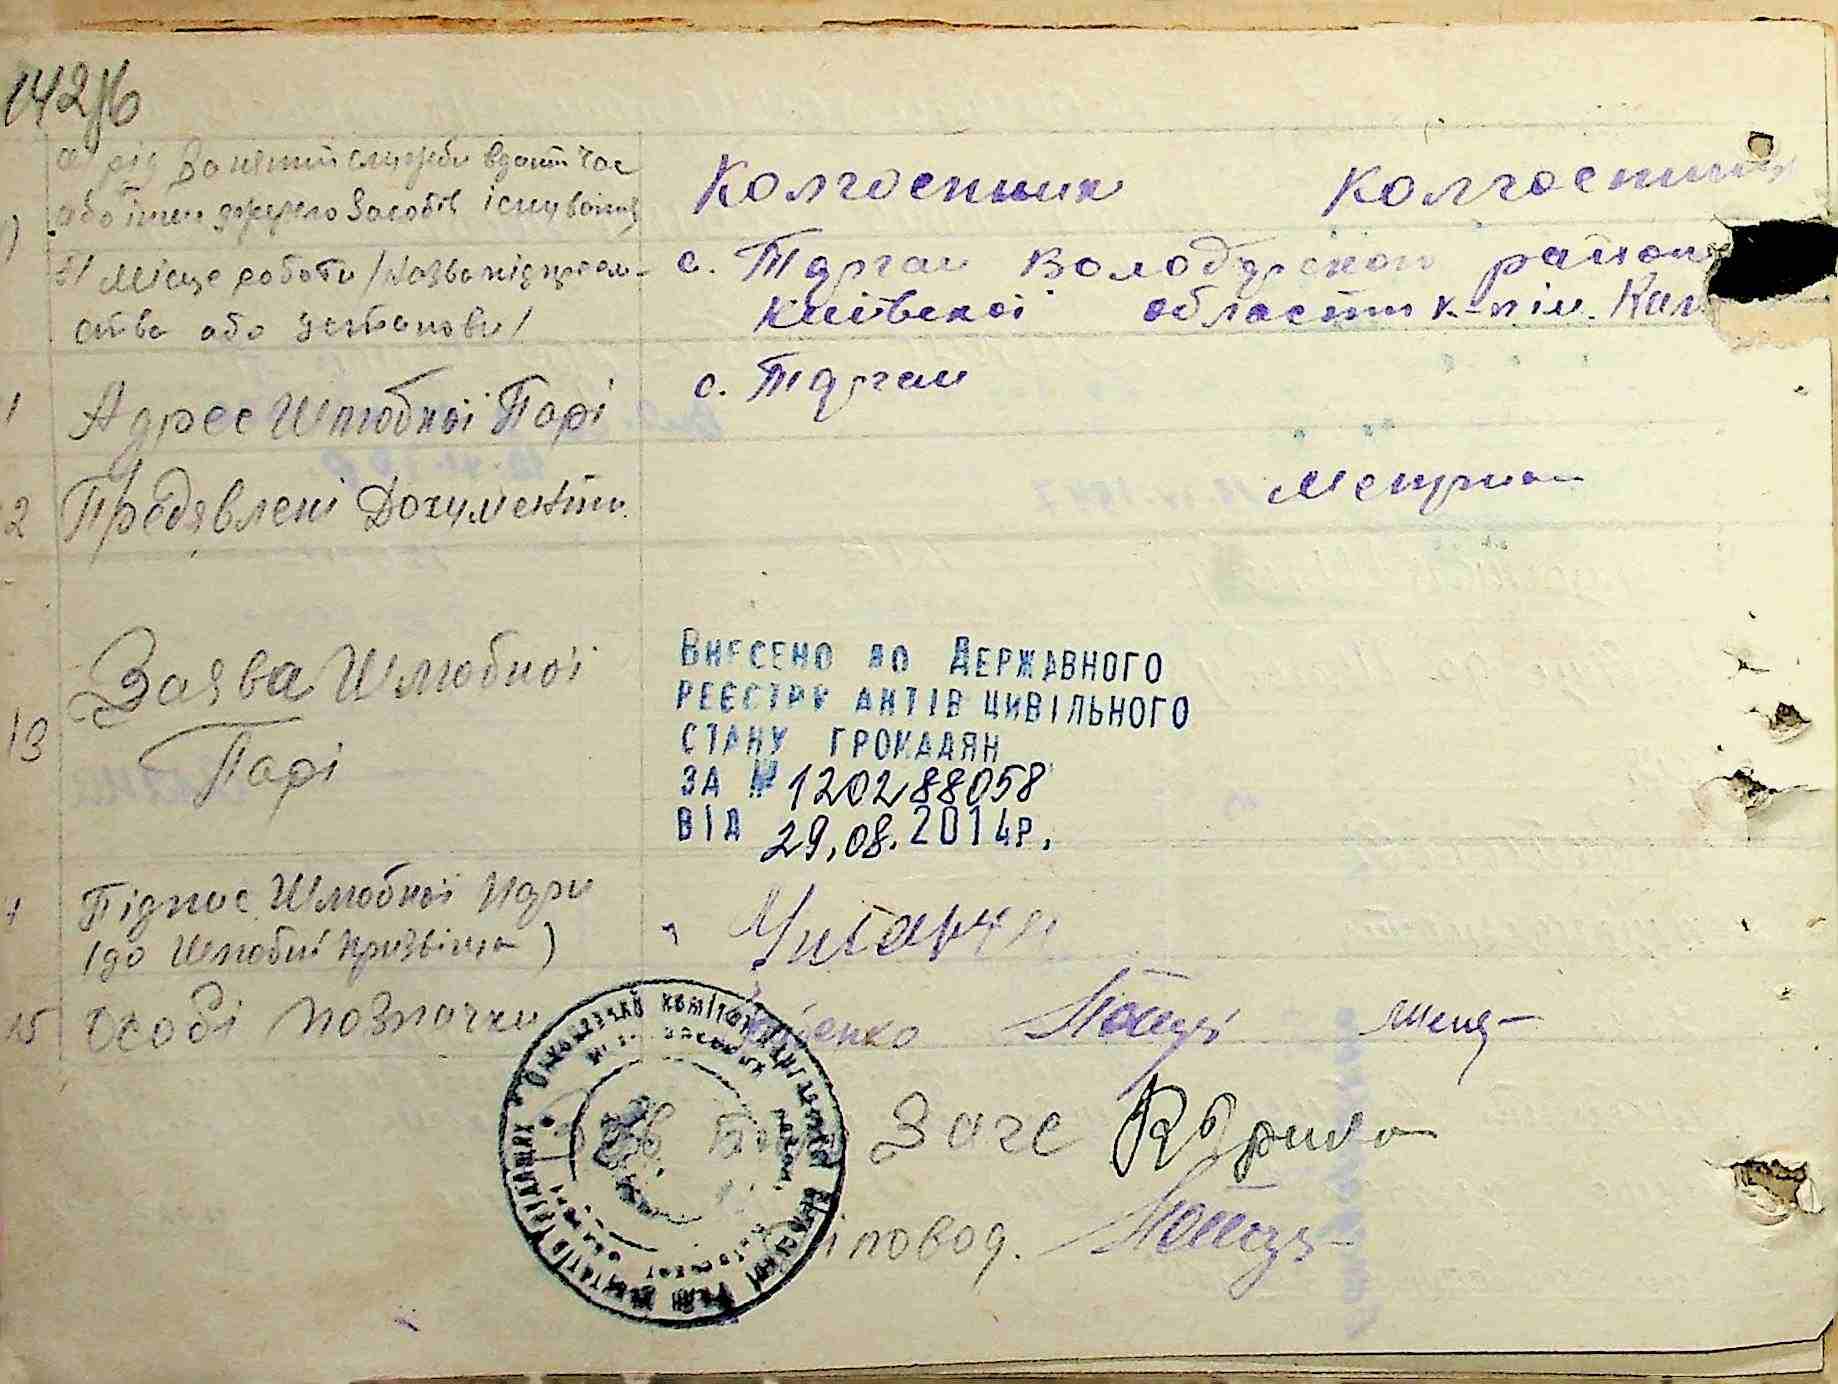 142
а) рід занятий служби в данті час
або інши джерело засобів існування
Колгоспник Колгоспни
б) Місце роботи (назва підприєм-
ства або установи)
с. Турган Володарского район
Київскої області к-п ім. Кал
Адрес Шлюбної Парі
с. Турган
2 Предявлені Документи
Метрики
13 Заява Шлюбної
Парі
ВНЕСЕНО ДО ДЕРЖАВНОГО
РЕЄСТРУ АКТІВ ЦИВІЛЬНОГО
СТАНУ ГРОМАДЯН
ЗА № 120288058
ВІД 29.08.2014р.
Підпис Шлюбної Пари
(до Шлюбні призвіща)
15 Особі позначки
Загс
повод.